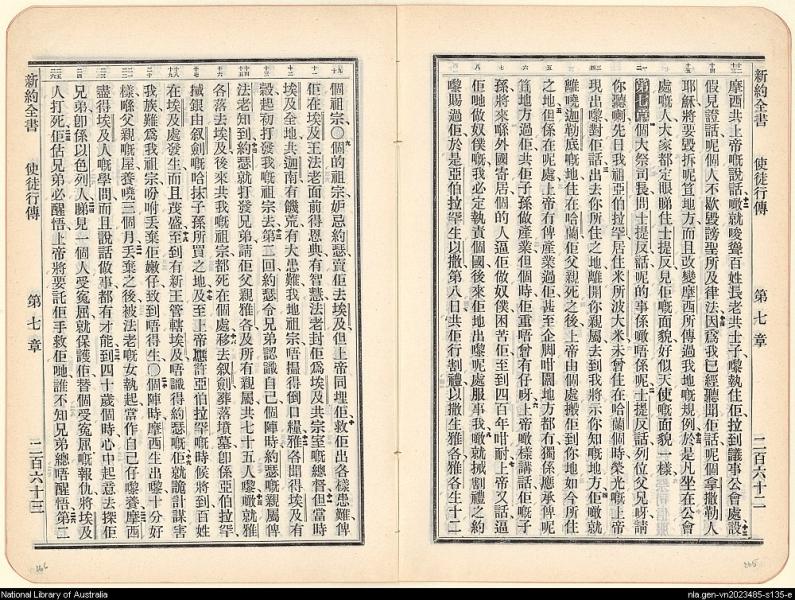 新約全書　使徒行傳　第七章　二百六十二
摩西共上帝嘅說話噉就唆聳百姓長老共士子嚟執住佢拉到議事公會處設
假見證話呢個人不歇毀謗聖所及律法因為我已經聽聞佢話呢個拿撒勒人
耶穌將要毀拆呢笪地方而且改變摩西所傳過我哋嘅規例於是凡坐在公會
處嘅人大家都定眼睇住士提反見佢嘅面貌好似天使嘅面貌一樣
第七章個大祭司長問士提反話呢的事係噉唔係呢士提反話列位父兄呀請
你聽喇先日我祖亞伯拉罕居住米所波大米未曾住在哈蘭個時榮光嘅上帝
現出嚟對佢話出去你所住之地離開你親屬去到我將示你知嘅地方佢噉就
離嘵迦勒底嘅地住在哈蘭佢父親死之後上帝由個處搬佢到你地如今所住
之地但係在呢處上帝冇俾產業過佢甚至企脚咁闊地方都冇獨係應承俾呢
笪地方過佢共佢子孫做產業但個時佢重唔曾有仔呀上帝噉樣講話佢嘅子
孫將來喺外國寄居個的人逼佢做奴僕困苦佢至到四百年咁耐上帝又話逼
佢哋做奴僕嘅我必定執責個國後來佢地出嚟呢處服事我噉就搣割禮之約
嚟賜過佢於是亞伯拉罕生以撒第八日共佢行割禮以撒生雅各雅各生十二
個祖宗○個的祖宗妒忌約瑟賣佢去埃及但上帝同埋佢救佢出各樣患難俾
佢在埃及王法老面前得恩典有智慧法老封佢為埃及共宗室嘅總督但當時
埃及全地共迦南有饑荒有大患難我地祖宗唔揾得倒口糧雅各聞得埃及有
穀起初打發我嘅祖宗去第二回約瑟令兄弟認識自己個陣時約瑟嘅親屬俾
法老知到約瑟就打發兄弟請佢父親雅各及所有親屬共七十五人嚟噉就雅
各落去埃及後來共我嘅祖宗都死在個處移去叙劍葬落墳墓即係亞伯拉罕
搣銀由叙劍嘅哈抹子孫所買之地及至上帝應許亞伯拉罕嘅時候將到百姓
在埃及處發生而且茂盛至到有新王管轄埃及唔識得約瑟嘅佢就詭計謀害
我族難為我祖宗吩咐丟棄佢嫩仔致到唔得生○個陣時摩西生出嚟十分好
樣喺父親嘅屋養嘵三個月丟棄之後被法老嘅女執起當作自己仔嚟養摩西
盡得埃及人嘅學問而且說話做事都有才能到四十歲個時心中起意去探佢
兄弟即係以色列人睇見一個人受寃屈就保護佢替個受寃屈嘅報仇將埃及
人打死佢估兄弟必醒悟上帝將要託佢手救佢哋誰不知兄弟總唔醒悟第二
新約全書　使徒行傳　第七章　二百六十三
266
265
National Library of Australia
nla.gen-vn2023485-s135-e